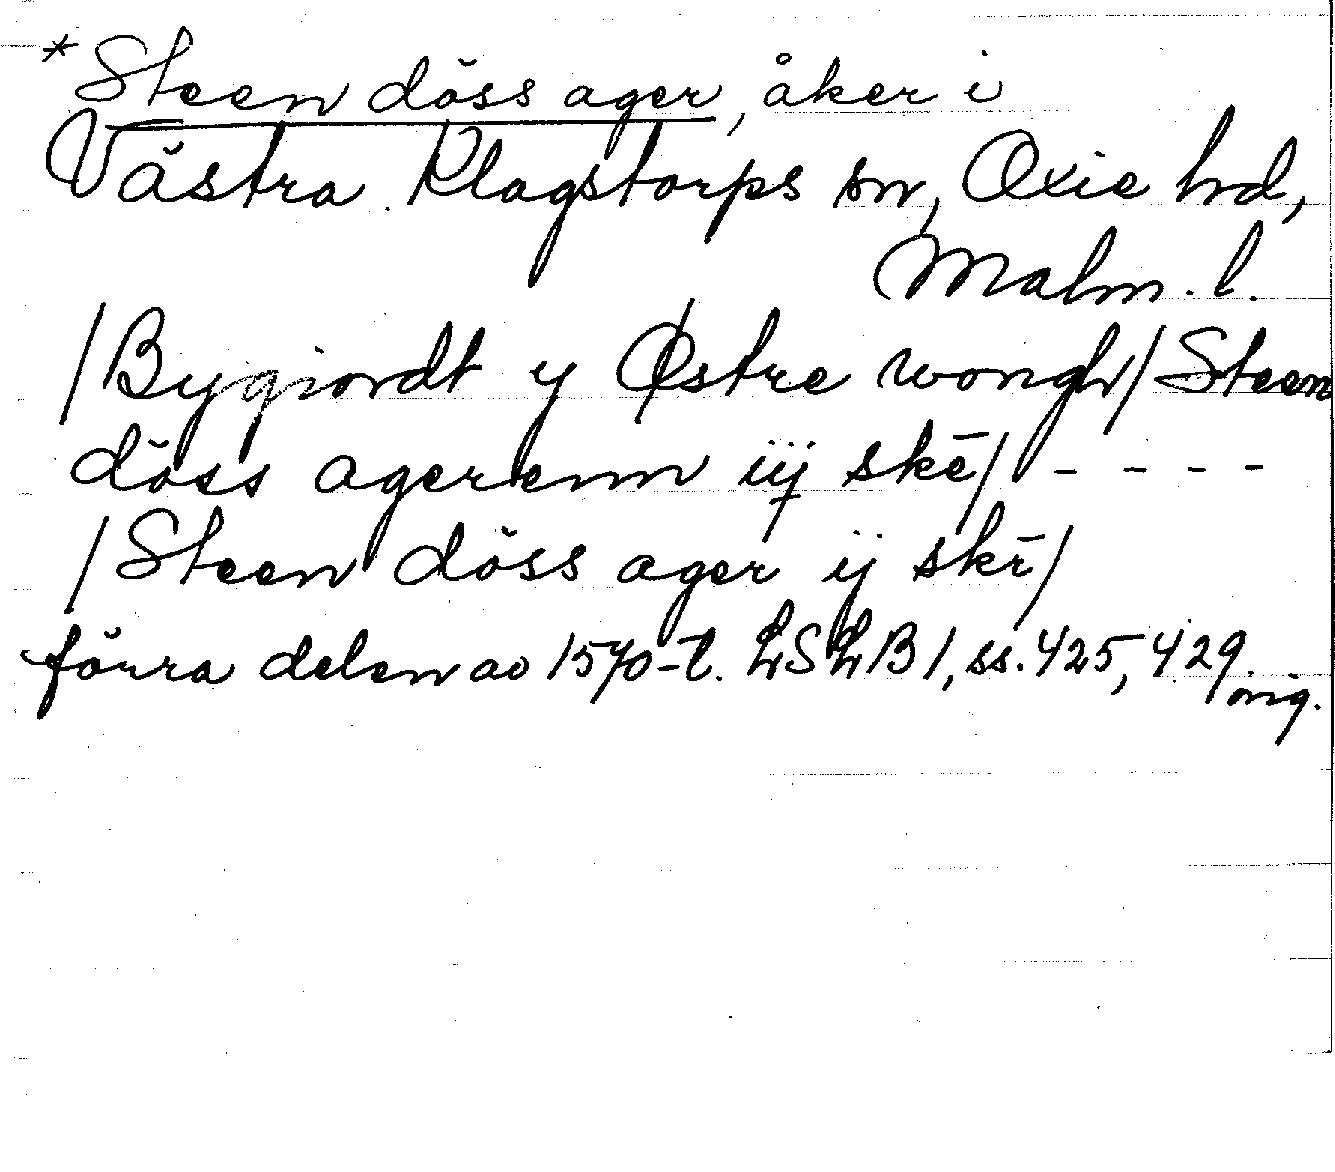 *Steen döss ager, åker i
Västra Klagstorps sn, Oxie hd,
Malm. l.
/Bygiordt y Østre wongh/ Steen
döss agerenn iij skē/ - - - -
/Steen döss ager ij skē/
förra delen av 1570-t. LSLB 1, ss. 425, 429
orig.